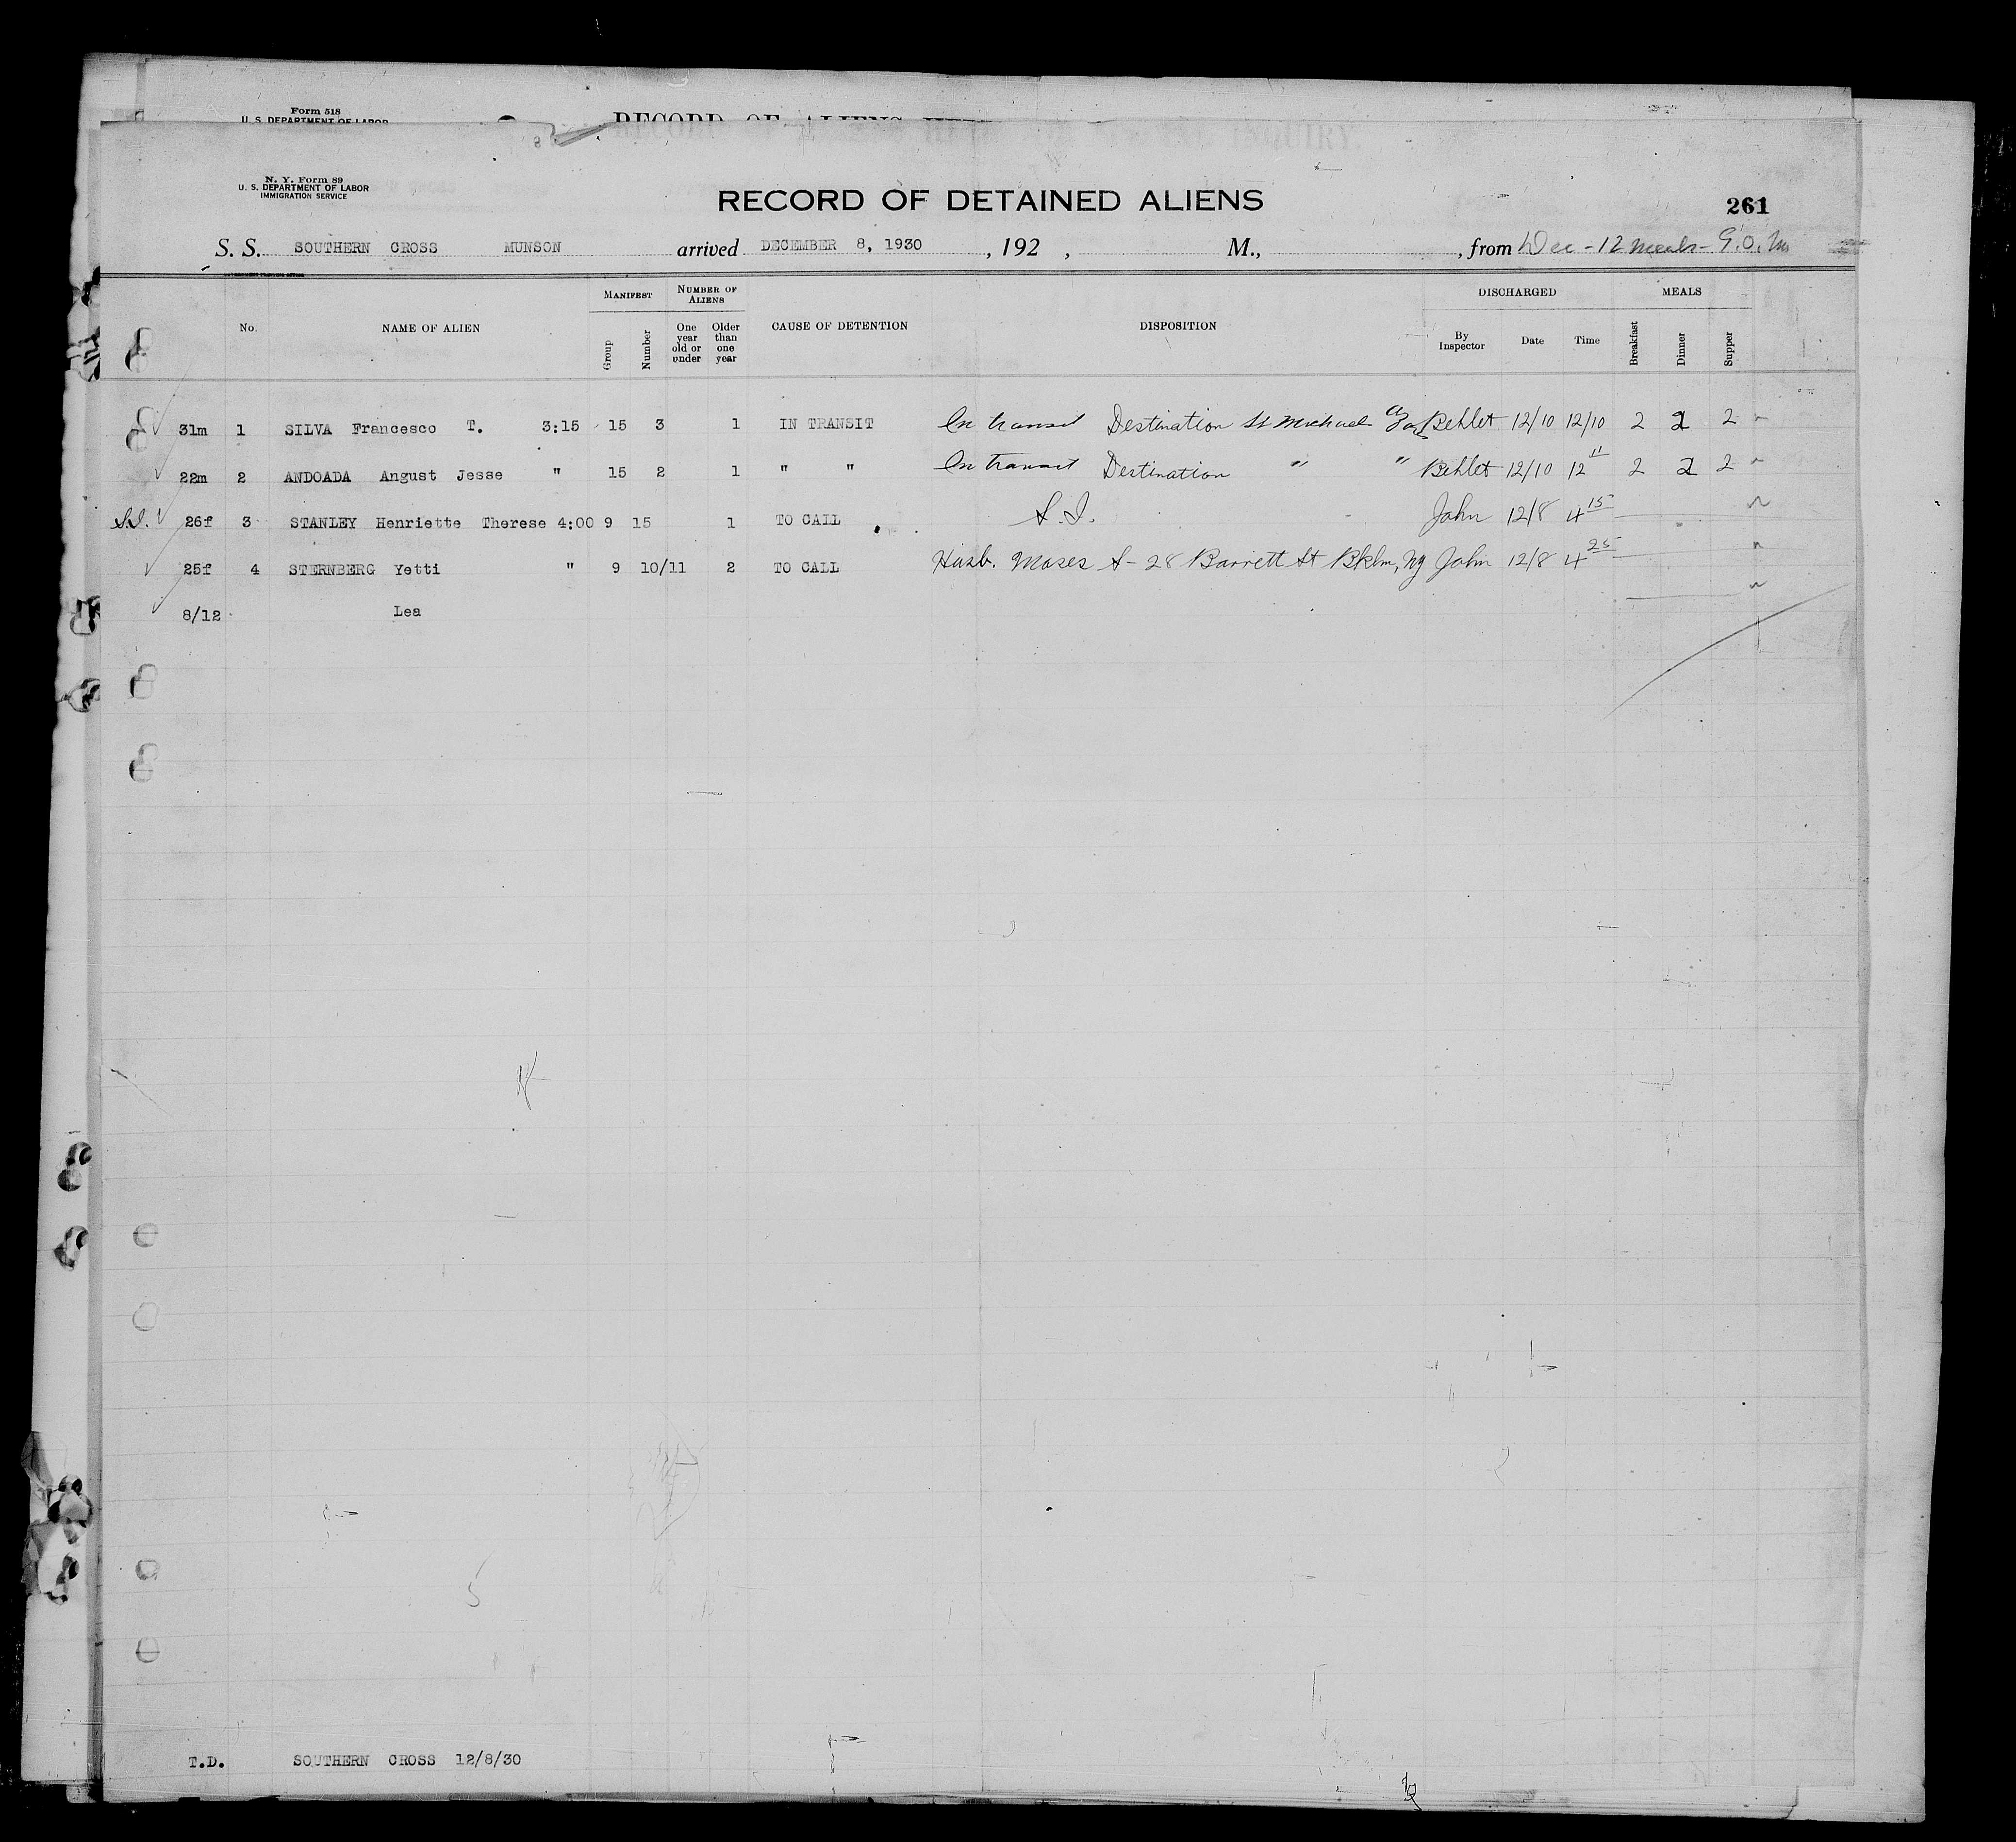 Form 518
U. S. DEPARTMENT OF LABOR
RECORD OF ALIENS
N. Y. Form 89
U. S. DEPARTMENT OF LABOR
IMMIGRATION SERVICE
RECORD OF DETAINED ALIENS
261
S. S. SOUTHERN CROSS MUNSON arrived DECEMBER 8, 1930 , 192 , M., , from Dec - 12 meals - G.O.M
No. NAME OF ALIEN MANIFEST Group Number NUMBER OF ALIENS One year old or under Older than one year CAUSE OF DETENTION DISPOSITION DISCHARGED By Inspector Date Time MEALS Breakfast Dinner Supper
31m 1 SILVA Francesco T. 3:15 15 3 1 IN TRANSIT In transit Destination St Michael Behlet 12/10 12/10 2 2 2
22m 2 ANDOADA Angust Jesse " 15 2 1 " " In transit Destination " " Behlet 12/10 12 11 2 2 2
S.I. 26f 3 STANLEY Henriette Therese 4:00 9 15 1 TO CALL S.I. John 12/8 4 15
25f 4 STERNBERG Yetti " 9 10/11 2 TO CALL Husb. Moses S - 28 Barrett St Bklm, Ny John 12/8 4 25
8/12 Lea
T.D. SOUTHERN CROSS 12/8/30